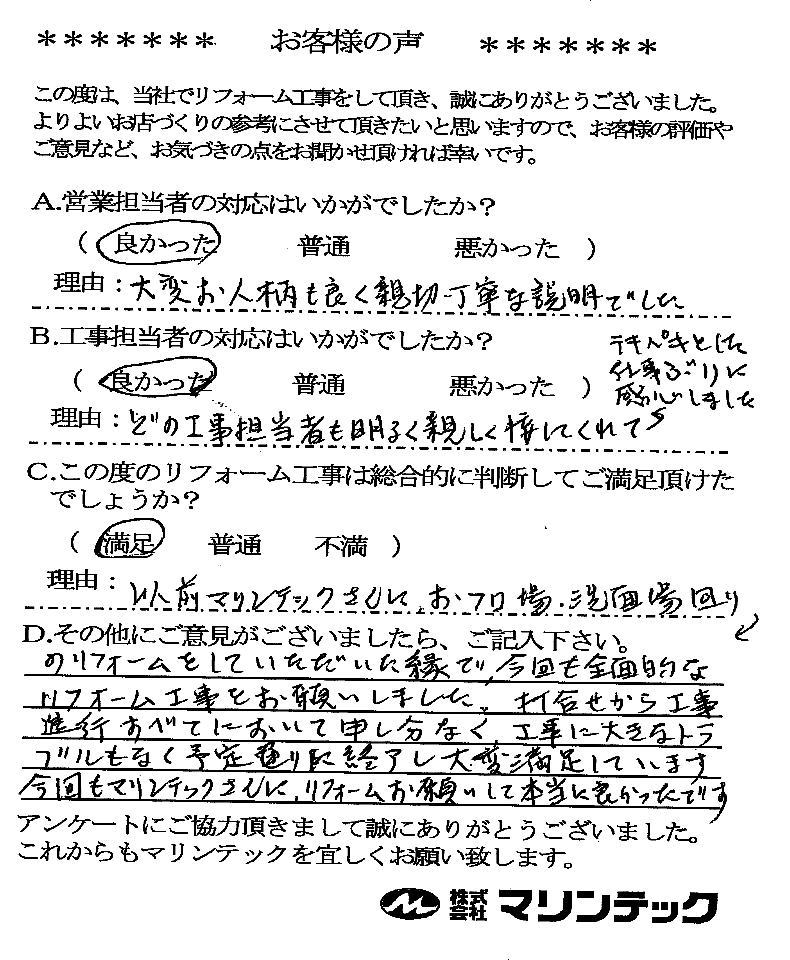 ******* お客様の声 *******
この度は、当社でリフォーム工事をして頂き、誠にありがとうございました。
よりよいお店づくりの参考にさせて頂きたいと思いますので、お客様の評価や
ご意見など、お気づきの点をお聞かせ頂ければ幸いです。
A.営業担当者の対応はいかがでしたか?
( 良かった 普通 悪かった )
理由:大変お人柄も良く親切丁寧な説明でした
B.工事担当者の対応はいかがでしたか?
( 良かった 普通 悪かった )
理由:どの工事担当者も明るく親しく接してくれて
テキパキとした
仕事ぶりに
感心しました
C.この度のリフォーム工事は総合的に判断してご満足頂けた
でしょうか?
( 満足 普通 不満 )
理由: 以前マリンテックさんに、お・フロ場・洗面場回り
D.その他にご意見がございましたら、ご記入下さい。
のリフォームをしていただいた縁で、今回も全面的な
リフォーム工事をお願いしました。打合せから工事
進行すべてにおいて申し分なく、工事に大きなトラ
ブルもなく予定通りに終了し大変満足しています
今回もマリンテックさんに、リフォームお願いして本当に良かったです
アンケートにご協力頂きまして誠にありがとうございました。
これからもマリンテックを宜しくお願い致します。
M 株式会社 マリンテック